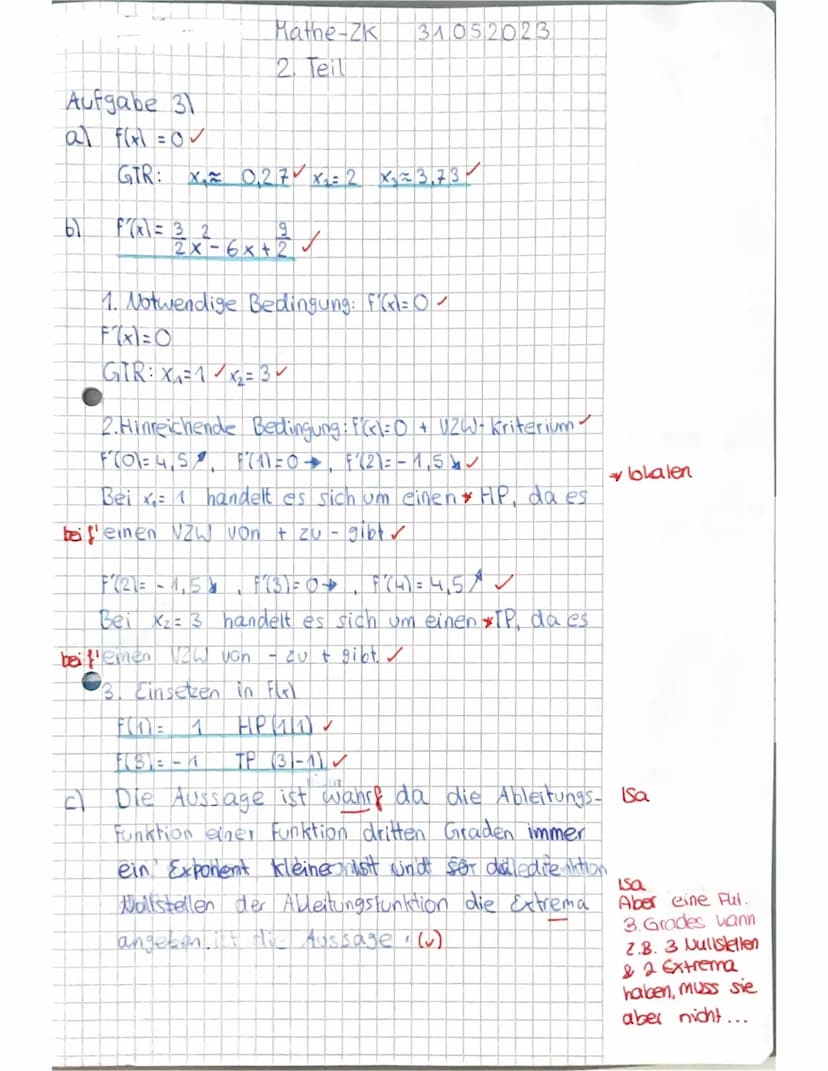 Mathe-ZK 31.05.2023
2. Teil
Aufgabe 3)
a) f(x) = 0 ✓
GTR: x₁≈ 0,27 ✓ x₂= 2 x₃≈ 3,73 ✓
b) f'(x) = 3/2 x² - 6x + 9/2 ✓
1. Notwendige Bedingung: f'(x)=0 ✓
f'(x)=0
GTR: x₁=1 ✓ x₂= 3 ✓
2. Hinreichende Bedingung: f'(x)=0 + VZW-Kriterium ✓
f'(0)=4,5↗, f'(1)=0→, f'(2)=-1,5↘ ✓
* lokalen
Bei x₁= 1 handelt es sich um einen * HP, da es
bei f' einen VZW von + zu - gibt ✓
f'(2)= -1,5↘, f'(3)=0→, f'(4)=4,5↗ ✓
Bei x₂= 3 handelt es sich um einen * TP, da es
bei f' einen VZW von - zu + gibt. ✓
3. Einsetzen in f(x)
f(1)= 1 HP(1|1) ✓
f(3)= -1 TP (3|-1) ✓
c) Die Aussage ist wahr, da die Ableitungs-
ISa
funktion einer Funktion dritten Graden immer
ein Exponent kleiner ist und
Nullstellen der Ableitungsfunktion die Extrema
angeben. die Aussage. (✓)
ISa
Aber eine Fkt.
3. Grades kann
z.B. 3 Nullstellen
& 2 Extrema
haben, muss sie
aber nicht...